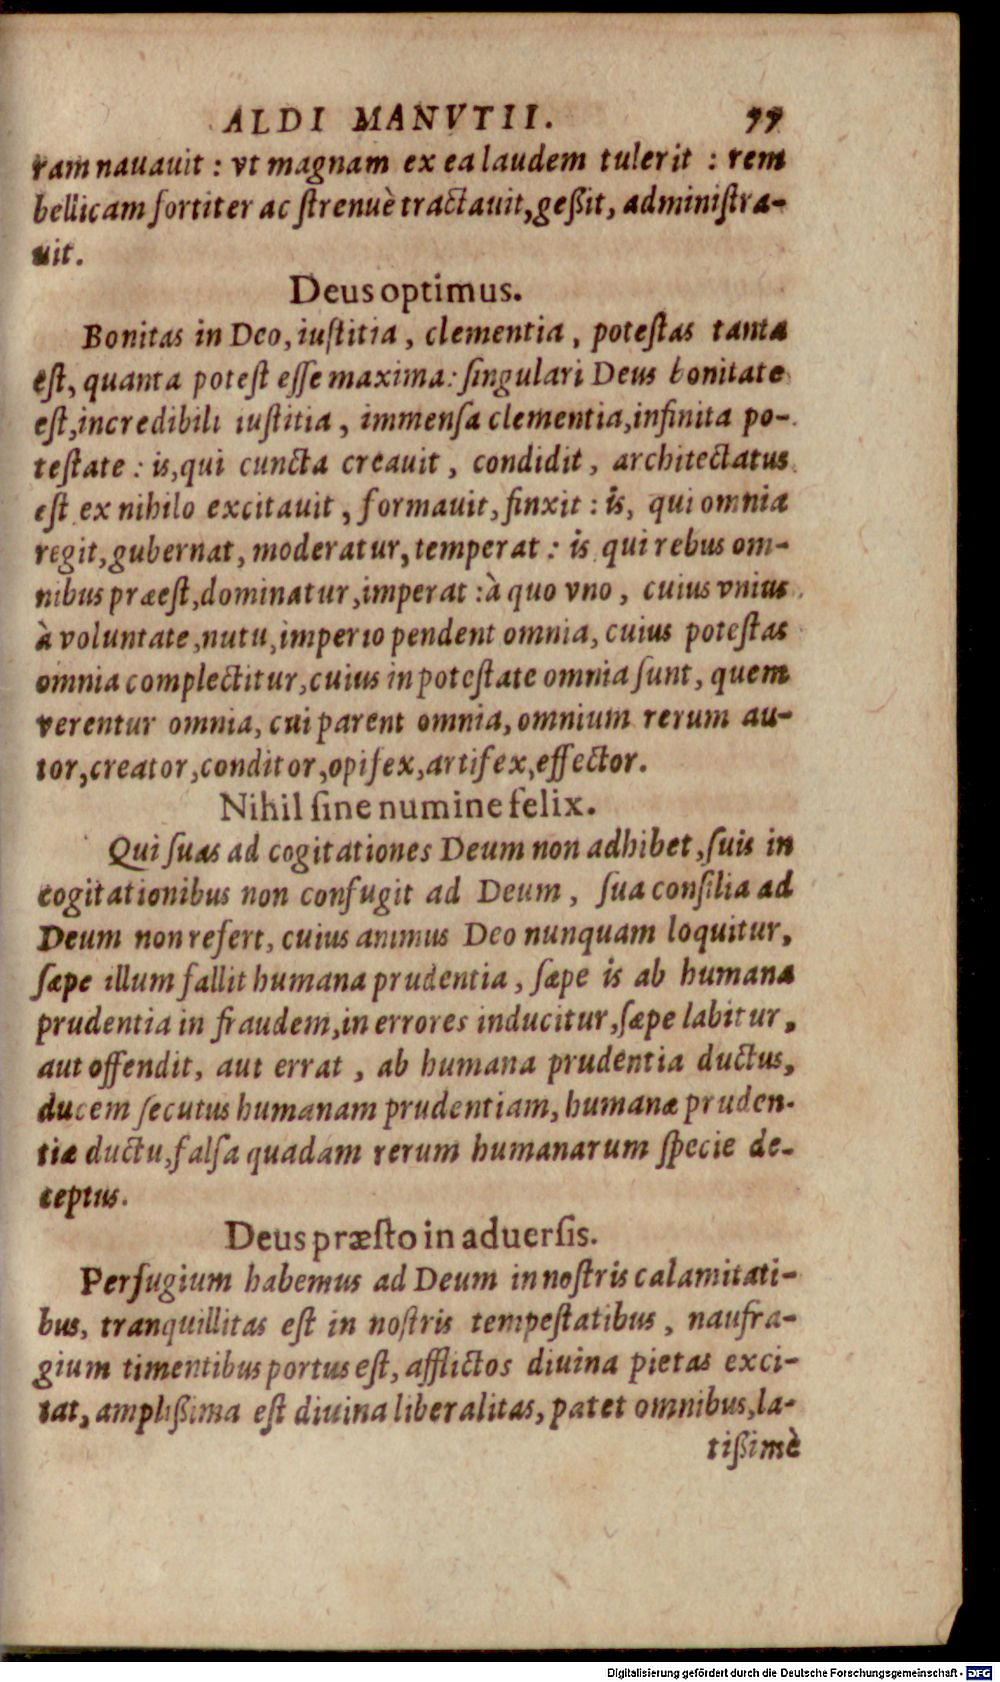 ALDI MANVTII. 77
ram nauauit : vt magnam ex ea laudem tulerit : rem
bellicam fortiter ac ſtrenuè tractauit, geßit, adminiſtra-
uit.
Deus optimus.
Bonitas in Deo, iuſtitia, clementia, poteſtas tanta
eſt, quanta poteſt eſſe maxima: ſingulari Deus bonitate
eſt, incredibili iuſtitia, immenſa clementia, infinita po-
teſtate : is, qui cuncta creauit, condidit, architectatus
eſt ex nihilo excitauit, formauit, finxit : is, qui omnia
regit, gubernat, moderatur, temperat : is qui rebus om-
nibus præeſt, dominatur, imperat : à quo vno, cuius vnius
à voluntate, nutu, imperio pendent omnia, cuius poteſtas
omnia complectitur, cuius in poteſtate omnia ſunt, quem
verentur omnia, cui parent omnia, omnium rerum au-
tor, creator, conditor, opifex, artifex, effector.
Nihil ſine numine felix.
Qui ſuas ad cogitationes Deum non adhibet, ſuis in
cogitationibus non confugit ad Deum, ſua conſilia ad
Deum non refert, cuius animus Deo nunquam loquitur,
ſæpe illum fallit humana prudentia, ſæpe is ab humana
prudentia in fraudem, in errores inducitur, ſæpe labitur,
aut offendit, aut errat, ab humana prudentia ductus,
ducem ſecutus humanam prudentiam, humanæ pruden-
tiæ ductu, falſa quadam rerum humanarum ſpecie de-
ceptus.
Deus præſto in aduerſis.
Perfugium habemus ad Deum in noſtris calamitati-
bus, tranquillitas eſt in noſtris tempeſtatibus, naufra-
gium timentibus portus eſt, afflictos diuina pietas exci-
tat, ampliſſima eſt diuina liberalitas, patet omnibus, la-
tißimè
Digitalisierung gefördert durch die Deutsche Forschungsgemeinschaft - DFG